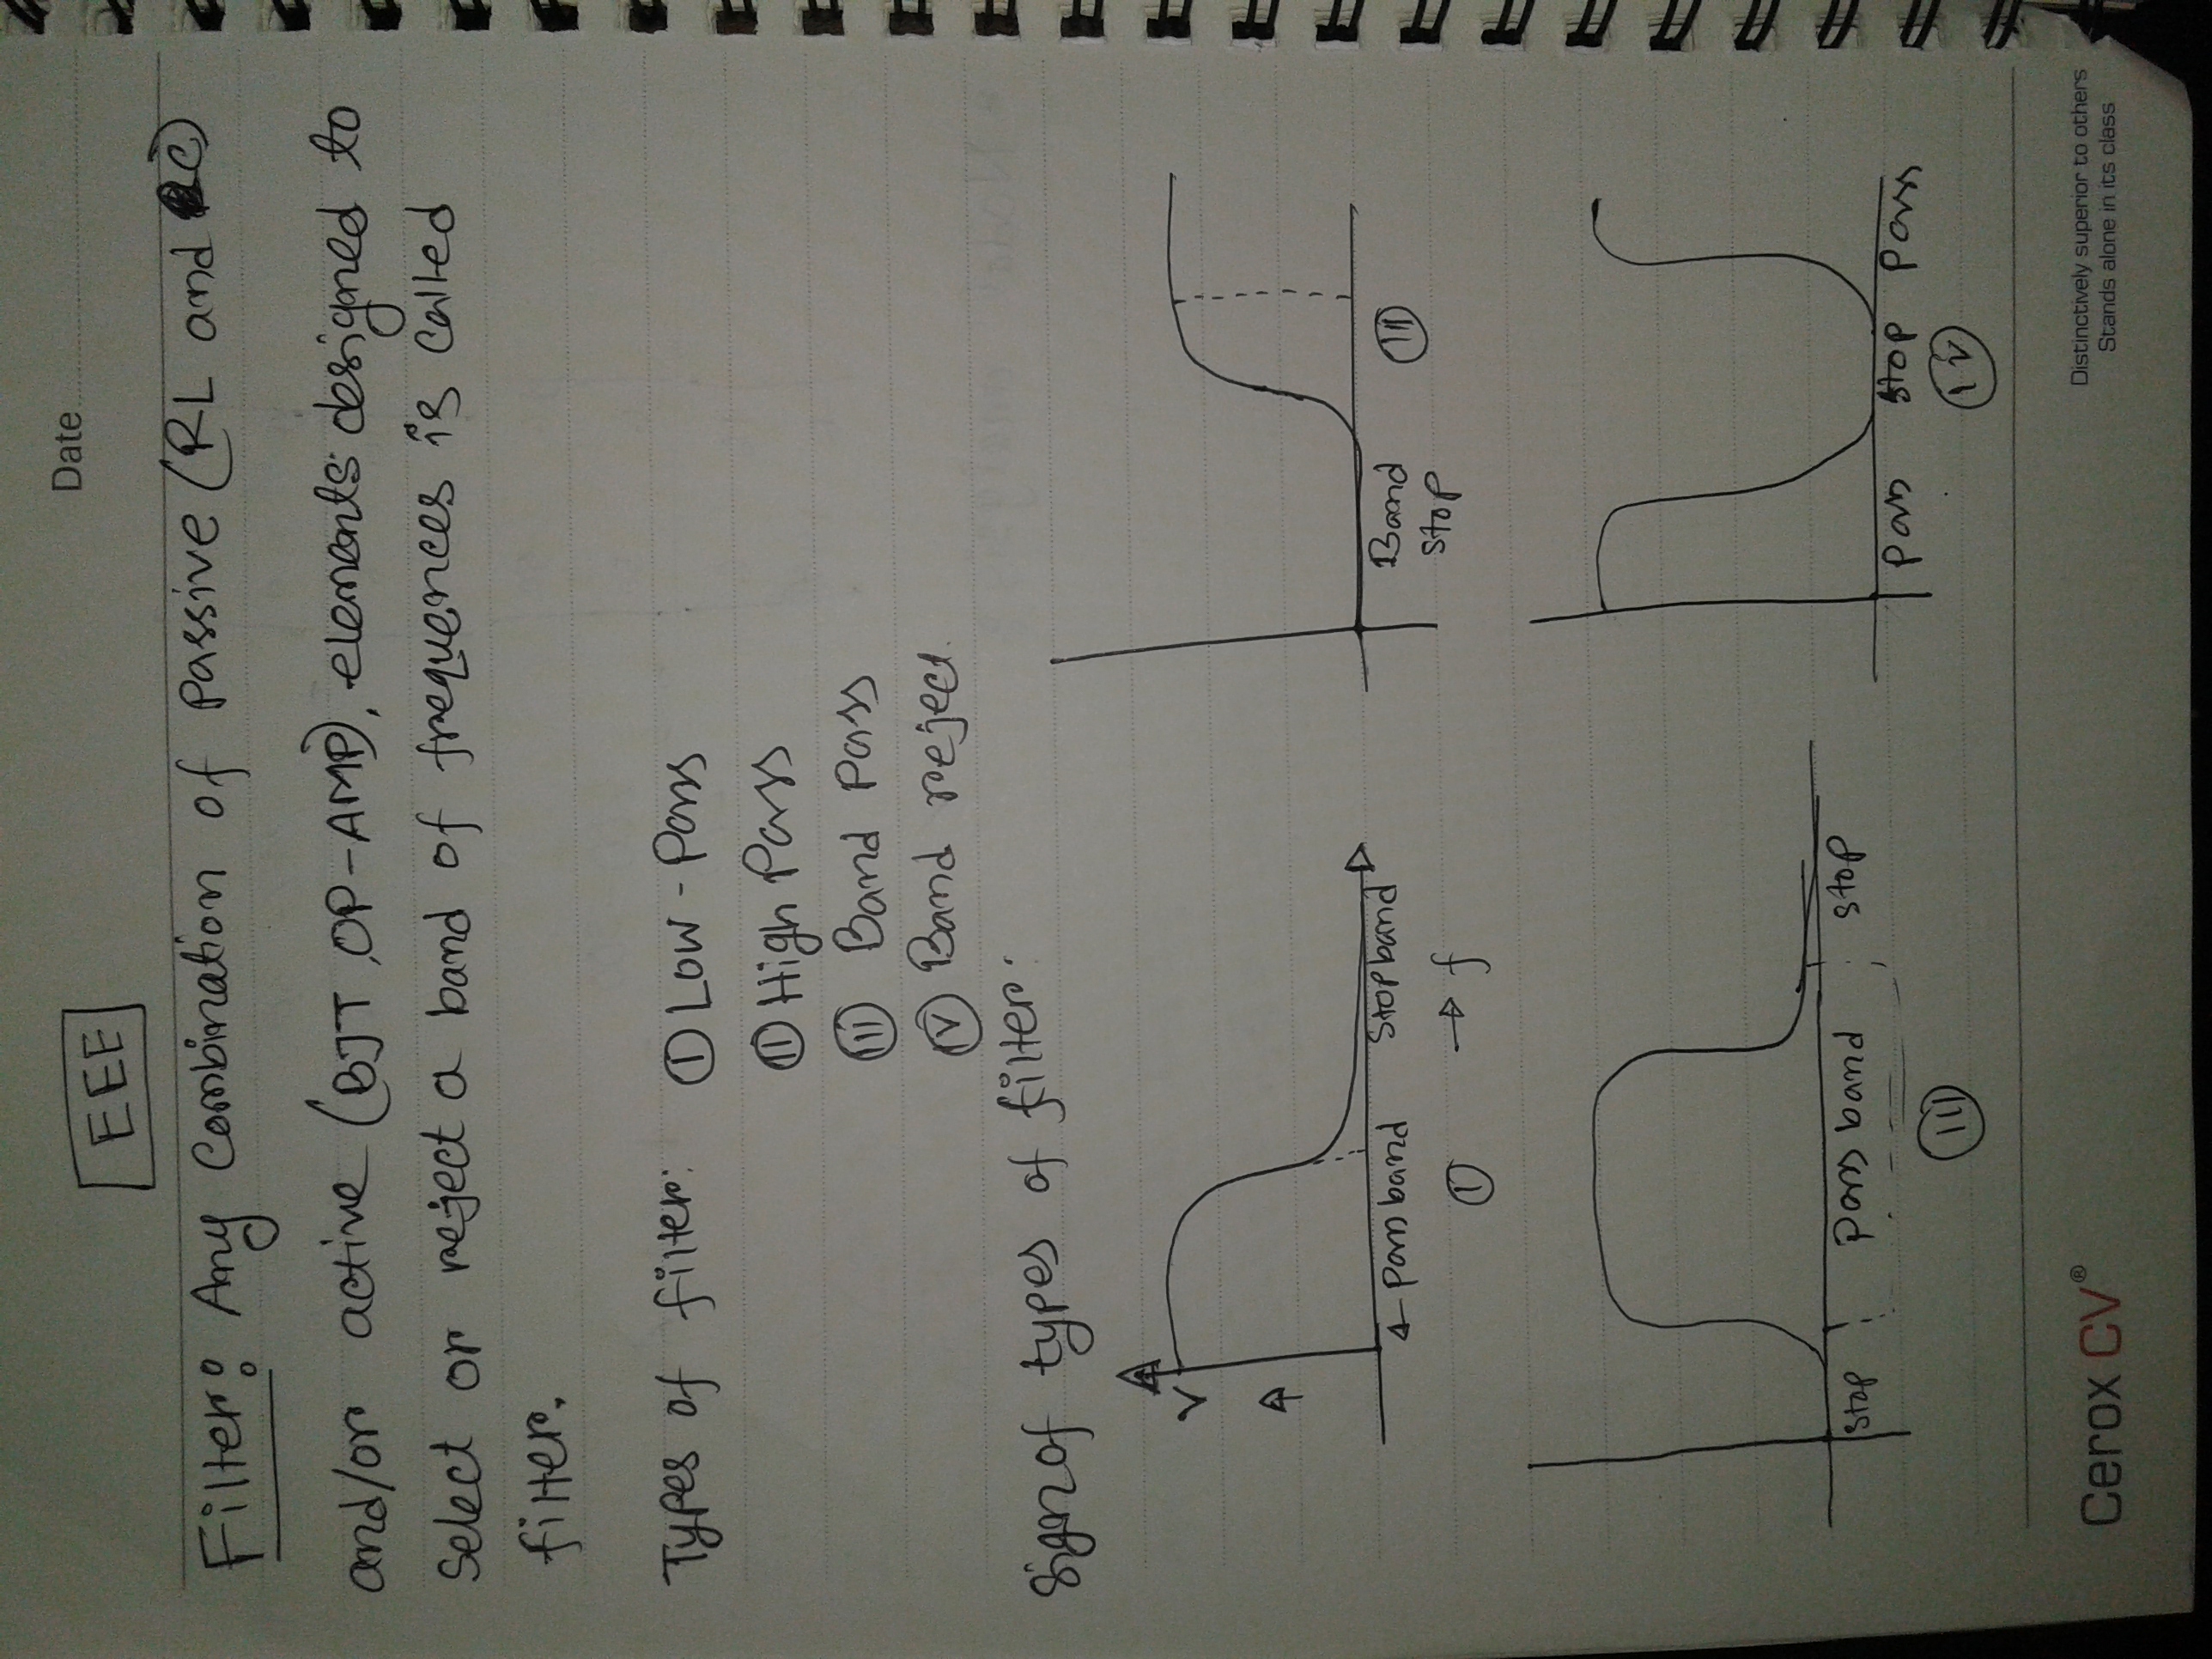 Date
EEE
Filter: Any Combination of Passive (RL and C)
and/or active (BJT, OP-AMP), elements designed to
Select or reject a band of frequences is called
filter.
Types of filter: I Low-Pass
II High Pass
III Band Pass
IV Band reject.
Sign of types of filter:
V
Pass band Stopband
I → f
Band II
stop
stop Pass band stop
III
Pass stop Pass
IV
Cerox CV®
Distinctively superior to others
Stands alone in its class